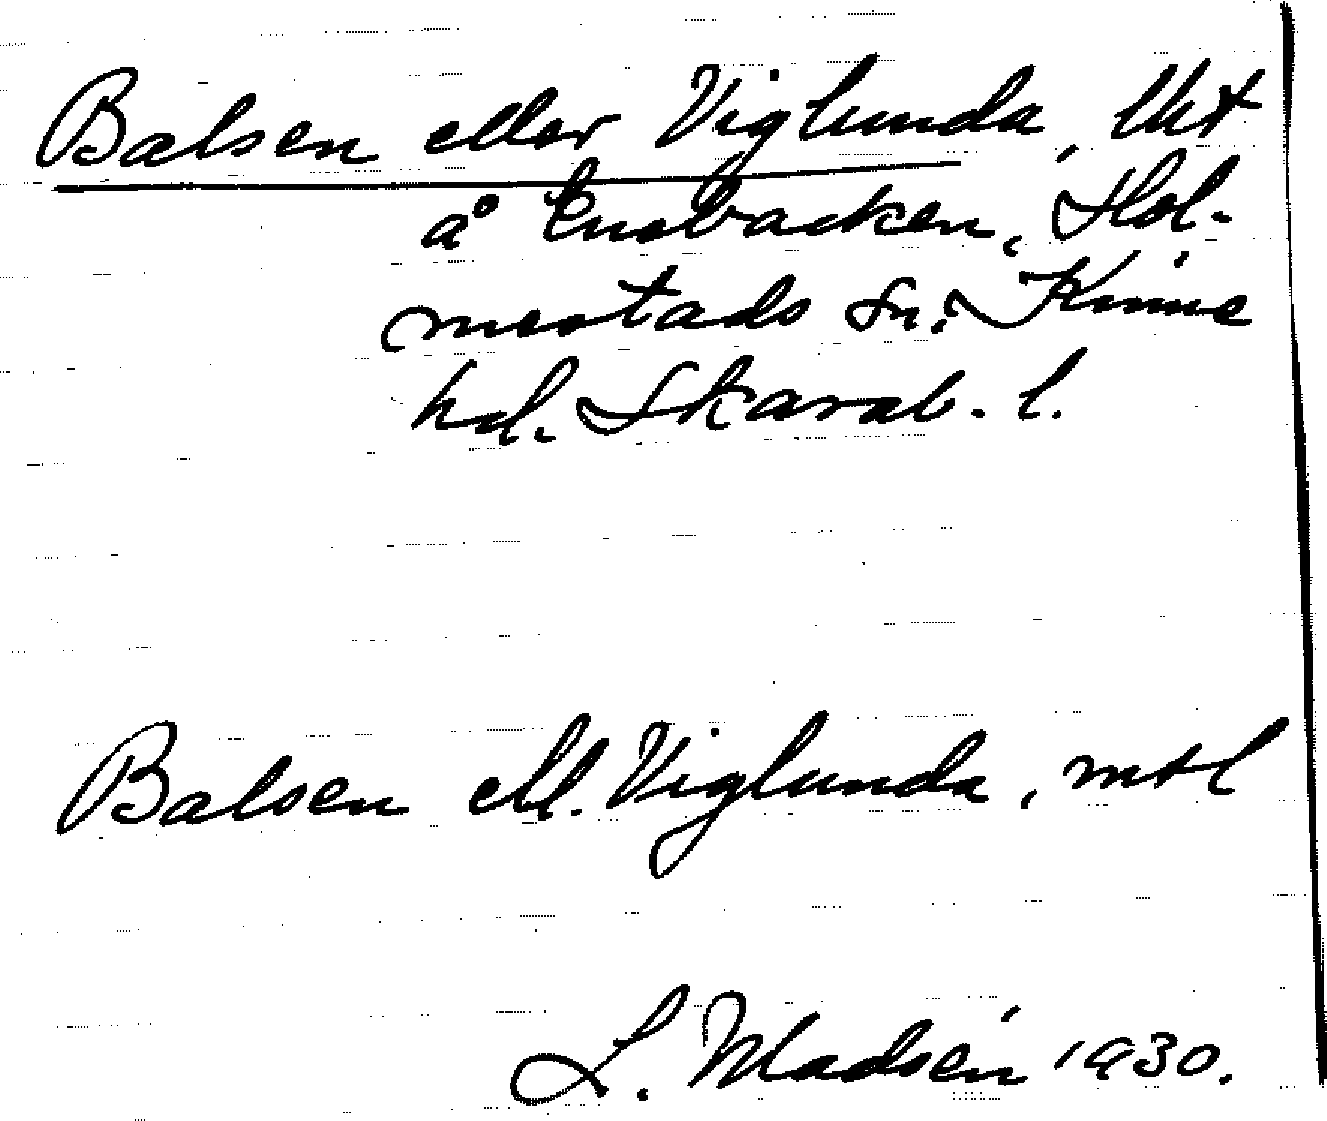 Balsen eller Viglunda, lht
å Ensbacken, Hol-
mestads sn. Kinne
hd. Skarab. l.
Balsen ell. Viglunda, mtl
L. Madsén 1930.